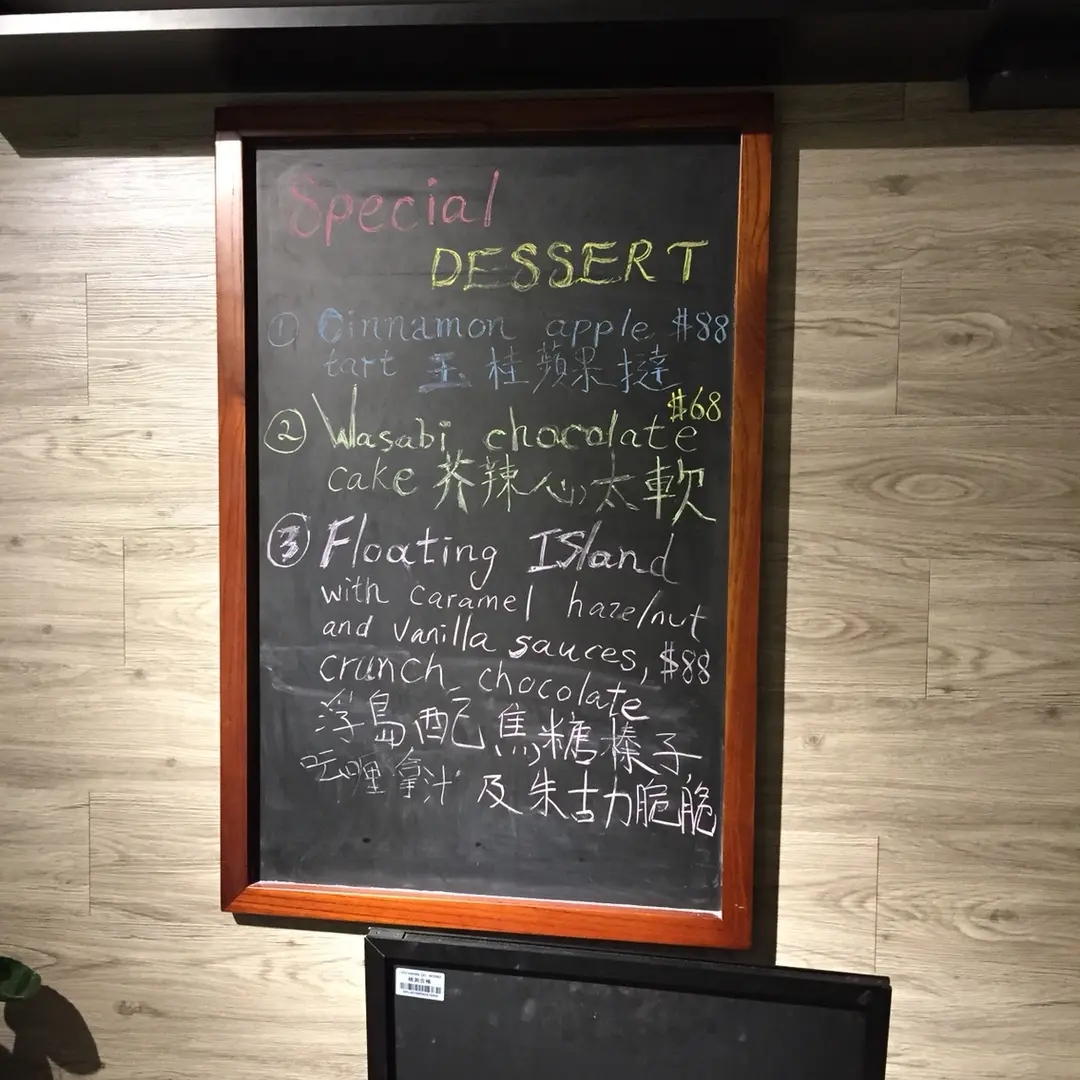 Special
DESSERT
① Cinnamon apple $88
tart 玉桂蘋果撻
$68
② Wasabi chocolate
cake 芥辣心太軟
③ Floating Island
with caramel hazelnut
and vanilla sauces, $88
crunch chocolate
浮島配焦糖榛子,
呍哩拿汁及朱古力脆脆